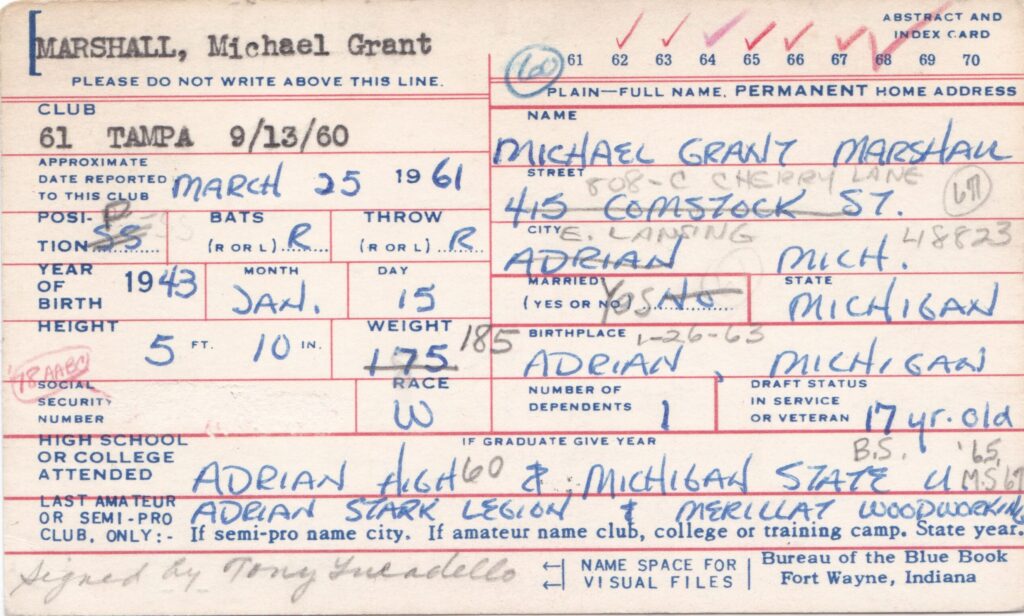 MARSHALL, Michael Grant
ABSTRACT AND
INDEX CARD
PLEASE DO NOT WRITE ABOVE THIS LINE.
60 61 62 63 64 65 66 67 68 69 70
PLAIN—FULL NAME, PERMANENT HOME ADDRESS
CLUB
61 TAMPA 9/13/60
NAME
MICHAEL GRANT MARSHALL
APPROXIMATE
DATE REPORTED
TO THIS CLUB MARCH 25 1961
STREET 808-C CHERRY LANE 67
415 COMSTOCK ST.
POSI-
TION SS P
BATS
(R OR L) R
THROW
(R OR L) R
CITY E. LANSING 48823
ADRIAN MICH.
YEAR
OF
BIRTH 1943
MONTH
JAN.
DAY
15
MARRIED
(YES OR NO) Yes No
STATE
MICHIGAN
HEIGHT
5 FT. 10 IN.
WEIGHT
175 185
BIRTHPLACE 1-26-63
ADRIAN, MICHIGAN
'78 AABC
SOCIAL
SECURITY
NUMBER
RACE
W
NUMBER OF
DEPENDENTS 1
DRAFT STATUS
IN SERVICE
OR VETERAN 17 yr. old
HIGH SCHOOL
OR COLLEGE
ATTENDED
IF GRADUATE GIVE YEAR
B.S. '65,
ADRIAN HIGH 60 & MICHIGAN STATE U M.S 67
LAST AMATEUR
OR SEMI-PRO
CLUB, ONLY:-
ADRIAN STARK LEGION & MERILLAT WOODWORKING
If semi-pro name city. If amateur name club, college or training camp. State year.
Signed by Tony Lucadello
NAME SPACE FOR
VISUAL FILES
Bureau of the Blue Book
Fort Wayne, Indiana